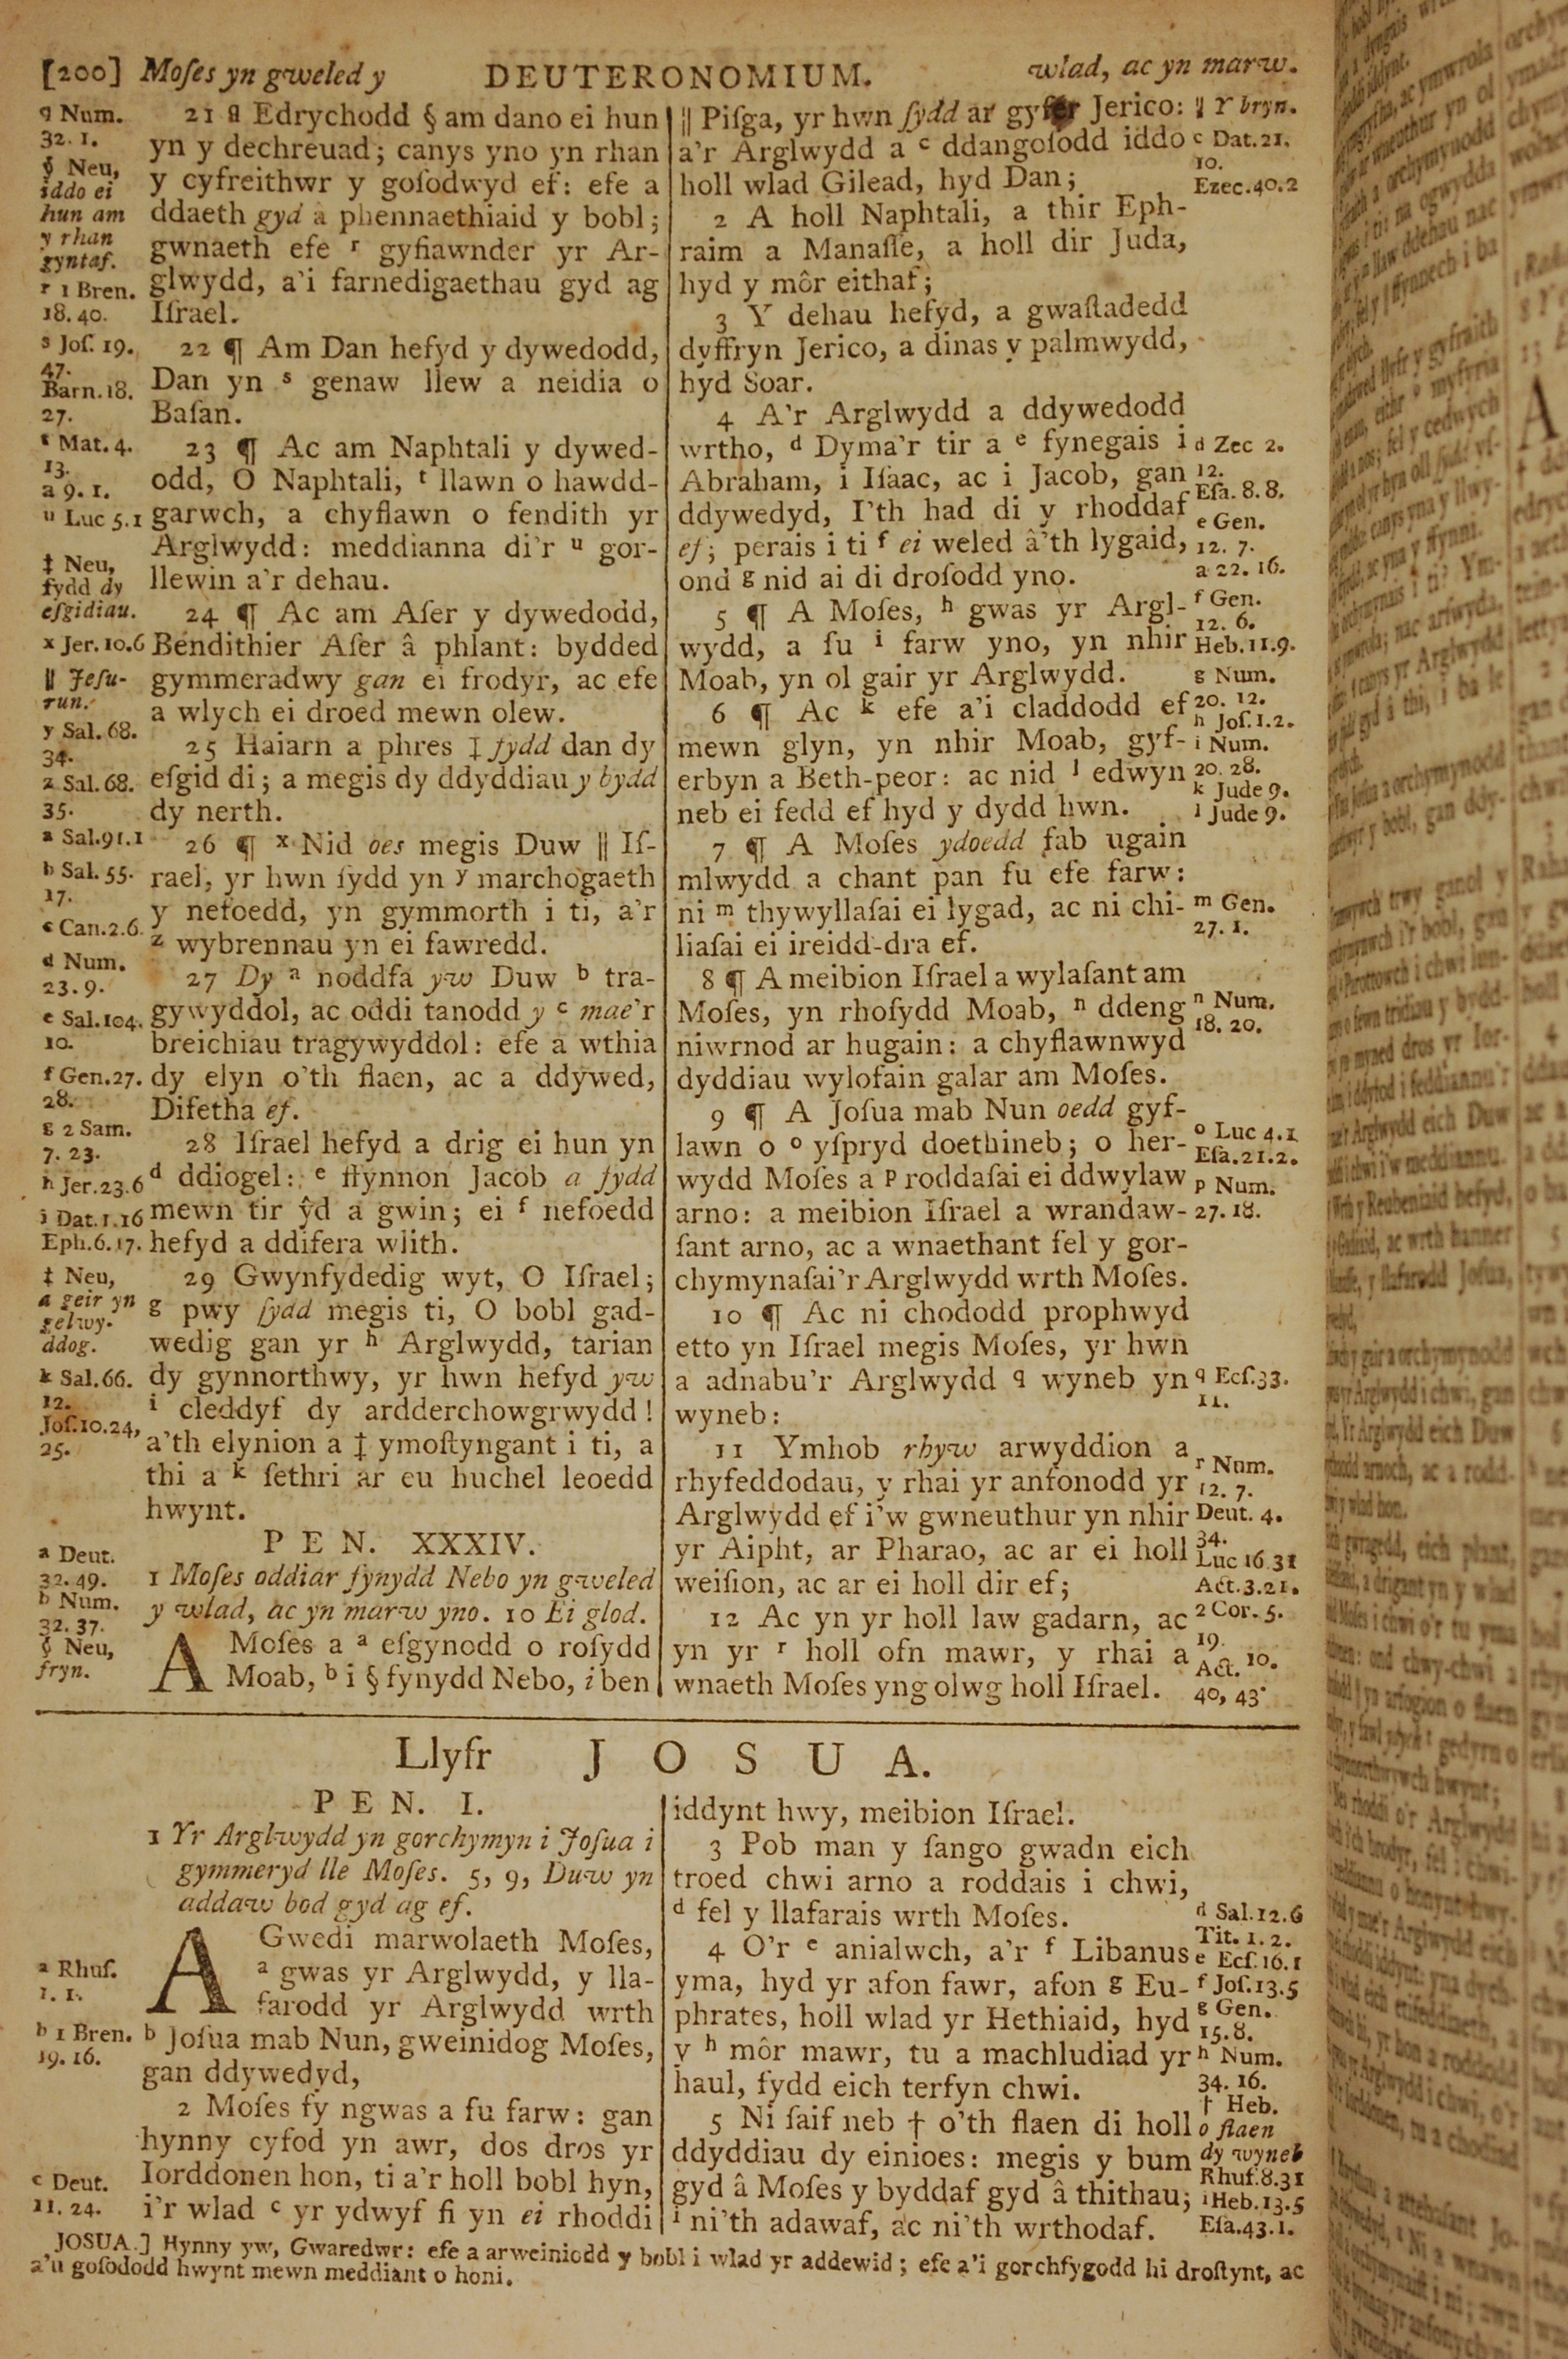 [200] Moſes yn gweled y DEUTERONOMIUM. wlad, ac yn marw.
q Num.
32. 1.
§ Neu,
iddo ei
hun am
y rhan
gyntaf.
r 1 Bren.
18. 40.
s Joſ. 19.
47.
Barn. 18.
27.
t Mat. 4.
13.
a 9. 1.
u Luc 5.1
‡ Neu,
fydd dy
eſgidiau.
x Jer. 10.6
‖ Jeſu-
run.
y Sal. 68.
34.
z Sal. 68.
35.
a Sal. 91.1
b Sal. 55.
17.
c Can. 2.6.
d Num.
23. 9.
e Sal. 104.
10.
f Gen. 27.
28.
g 2 Sam.
7. 23.
h Jer. 23.6
i Dat. 1.16
Eph. 6. 17.
‡ Neu,
a geir yn
gelwy-
ddog.
k Sal. 66.
12.
Joſ. 10.24,
25.
a Deut.
32. 49.
b Num.
32. 37.
§ Neu,
fryn.
21 q Edrychodd § am dano ei hun
yn y dechreuad; canys yno yn rhan
y cyfreithwr y goſodwyd ef: efe a
ddaeth gyd a phennaethiaid y bobl;
gwnaeth efe r gyfiawnder yr Ar-
glwydd, a'i farnedigaethau gyd ag
Iſrael.
22 ¶ Am Dan hefyd y dywedodd,
Dan yn s genaw llew a neidia o
Baſan.
23 ¶ Ac am Naphtali y dywed-
odd, O Naphtali, t llawn o hawdd-
garwch, a chyflawn o fendith yr
Arglwydd: meddianna di'r u gor-
llewin a'r dehau.
24 ¶ Ac am Aſer y dywedodd,
Bendithier Aſer â phlant: bydded
gymmeradwy gan ei frodyr, ac efe
a wlych ei droed mewn olew.
25 Haiarn a phres ‡ fydd dan dy
eſgid di; a megis dy ddyddiau y bydd
dy nerth.
26 ¶ x Nid oes megis Duw ‖ Iſ-
rael, yr hwn ſydd yn y marchogaeth
y nefoedd, yn gymmorth i ti, a'r
z wybrennau yn ei fawredd.
27 Dy a noddfa yw Duw b tra-
gywyddol, ac oddi tanodd y c mae'r
breichiau tragywyddol: efe a wthia
dy elyn o'th flaen, ac a ddywed,
Difetha ef.
28 Iſrael hefyd a drig ei hun yn
d ddiogel: e ffynnon Jacob a fydd
mewn tir ŷd a gwin; ei f nefoedd
hefyd a ddifera wlith.
29 Gwynfydedig wyt, O Iſrael;
g pwy ſydd megis ti, O bobl gad-
wedig gan yr h Arglwydd, tarian
dy gynnorthwy, yr hwn hefyd yw
i cleddyf dy ardderchowgrwydd!
a'th elynion a ‡ ymoſtyngant i ti, a
thi a k ſethri ar eu huchel leoedd
hwynt.
PEN. XXXIV.
1 Moſes oddiar fynydd Nebo yn gweled
y wlad, ac yn marw yno. 10 Ei glod.
A Moſes a a eſgynodd o roſydd
Moab, b i § fynydd Nebo, i ben
‖ Piſga, yr hwn ſydd ar gyfer Jerico:
a'r Arglwydd a c ddangoſodd iddo
holl wlad Gilead, hyd Dan;
2 A holl Naphtali, a thir Eph-
raim a Manaſſe, a holl dir Juda,
hyd y môr eithaf;
3 Y dehau hefyd, a gwaſtadedd
dyffryn Jerico, a dinas y palmwydd,
hyd Soar.
4 A'r Arglwydd a ddywedodd
wrtho, d Dyma'r tir a e fynegais i
Abraham, i Iſaac, ac i Jacob, gan
ddywedyd, I'th had di y rhoddaf
ef; perais i ti f ei weled â'th lygaid,
ond g nid ai di droſodd yno.
5 ¶ A Moſes, h gwas yr Argl-
wydd, a fu i farw yno, yn nhir
Moab, yn ol gair yr Arglwydd.
6 ¶ Ac k efe a'i claddodd ef
mewn glyn, yn nhir Moab, gyf-
erbyn a Beth-peor: ac nid l edwyn
neb ei fedd ef hyd y dydd hwn.
7 ¶ A Moſes ydoedd fab ugain
mlwydd a chant pan fu efe farw:
ni m thywyllaſai ei lygad, ac ni chi-
liaſai ei ireidd-dra ef.
8 ¶ A meibion Iſrael a wylaſant am
Moſes, yn rhoſydd Moab, n ddeng
niwrnod ar hugain: a chyflawnwyd
dyddiau wylofain galar am Moſes.
9 ¶ A Joſua mab Nun oedd gyf-
lawn o o yſpryd doethineb; o her-
wydd Moſes a p roddaſai ei ddwylaw
arno: a meibion Iſrael a wrandaw-
ſant arno, ac a wnaethant fel y gor-
chymynaſai'r Arglwydd wrth Moſes.
10 ¶ Ac ni chododd prophwyd
etto yn Iſrael megis Moſes, yr hwn
a adnabu'r Arglwydd q wyneb yn
wyneb:
11 Ymhob rhyw arwyddion a
rhyfeddodau, y rhai yr anfonodd yr
Arglwydd ef i'w gwneuthur yn nhir
yr Aipht, ar Pharao, ac ar ei holl
weiſion, ac ar ei holl dir ef;
12 Ac yn yr holl law gadarn, ac
yn yr r holl ofn mawr, y rhai a
wnaeth Moſes yng olwg holl Iſrael.
‖ Y bryn.
c Dat. 21.
10.
Ezec. 40. 2
d Zec 2.
12.
Eſa. 8. 8.
e Gen.
12. 7.
a 22. 16.
f Gen.
12. 6.
Heb. 11.9.
g Num.
20. 12.
h Joſ. 1. 2.
i Num.
20. 28.
k Jude 9.
l Jude 9.
m Gen.
27. 1.
n Num.
18. 20.
o Luc 4.1
Eſa. 21. 2.
p Num.
27. 18.
q Ecſ. 33.
11.
r Num.
12. 7.
Deut. 4.
34.
Luc 16 31
Act. 3. 21.
2 Cor. 5.
19.
Act. 10.
40, 43.
Llyfr JOSUA.
a Rhuf.
1. 1.
b 1 Bren.
19. 16.
c Deut.
11. 24.
PEN. I.
1 Yr Arglwydd yn gorchymyn i Joſua i
gymmeryd lle Moſes. 5, 9, Duw yn
addaw bod gyd ag ef.
A Gwedi marwolaeth Moſes,
a gwas yr Arglwydd, y lla-
farodd yr Arglwydd wrth
b Joſua mab Nun, gweinidog Moſes,
gan ddywedyd,
2 Moſes fy ngwas a fu farw: gan
hynny cyfod yn awr, dos dros yr
Iorddonen hon, ti a'r holl bobl hyn,
i'r wlad c yr ydwyf fi yn ei rhoddi
iddynt hwy, meibion Iſrael.
3 Pob man y ſango gwadn eich
troed chwi arno a roddais i chwi,
d fel y llafarais wrth Moſes.
4 O'r e anialwch, a'r f Libanus
yma, hyd yr afon fawr, afon g Eu-
phrates, holl wlad yr Hethiaid, hyd
y h môr mawr, tu a machludiad yr
haul, fydd eich terfyn chwi.
5 Ni ſaif neb † o'th flaen di holl
ddyddiau dy einioes: megis y bum
gyd â Moſes y byddaf gyd â thithau;
i ni'th adawaf, ac ni'th wrthodaf.
d Sal. 12.6
Tit. 1. 2.
e Ecſ. 16. 1
f Joſ. 13.5
g Gen.
15. 8.
h Num.
34. 16.
† Heb.
o flaen
dy wyneb
Rhuf. 8.31
i Heb. 13.5
Eſa. 43. 1.
JOSUA.] Hynny yw, Gwaredwr: efe a arweiniodd y bobl i wlad yr addewid; efe a'i gorchfygodd hi droſtynt, ac
a'u goſododd hwynt mewn meddiant o honi.